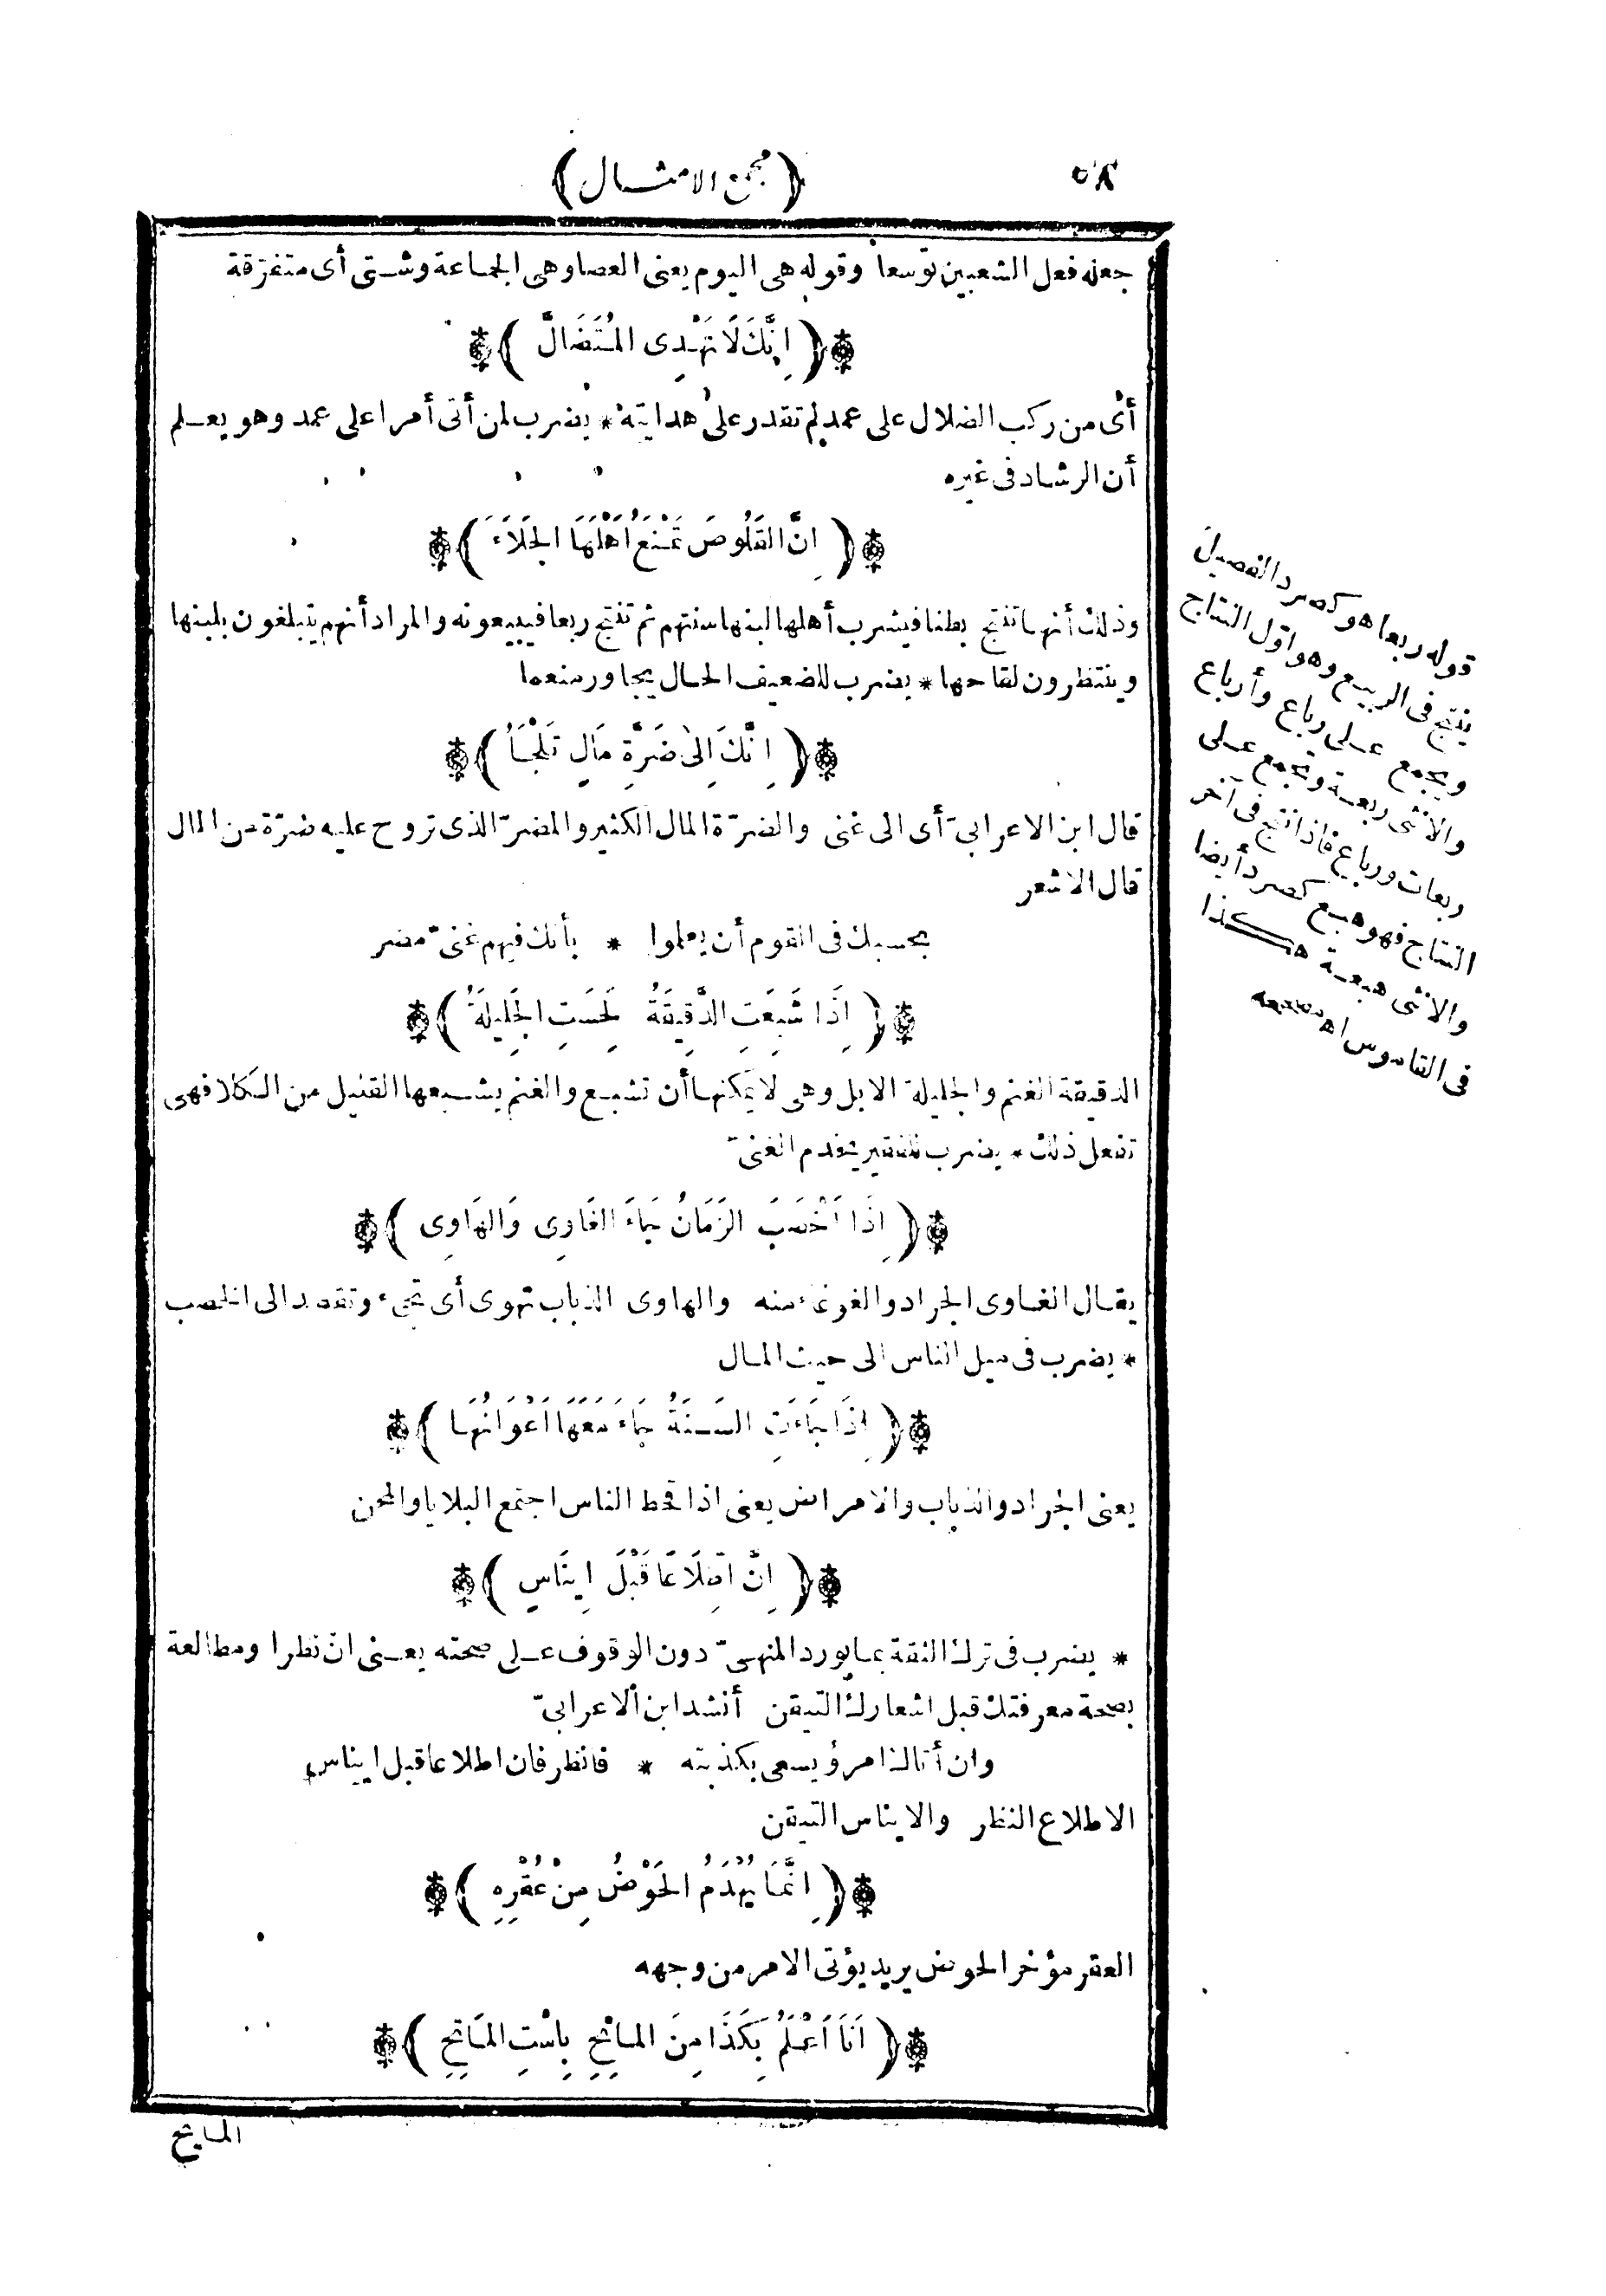 ٥٨
(مجمع الامثـال)
جعله فعل الشعبين توسعا وقوله هى اليوم يعنى العصا وهى الجماعة وشـتى أى متفرّقة
(اِنَّكَ لَا تَهْدِى المُتَضَالَّ)
أى من ركب الضلال على عمد لم تقدر على هدايته * يضرب لمن أتى أمرا على عمد وهو يعـلم
أن الرشاد فى غيره
(اِنَّ القَلُوصَ تَمْنَعُ اَهْلَهَا الجَلَاَءَ)
وذلك أنها تنتج بطنا فيشرب أهلها لبنها سنتهم ثم تنتج ربعا فيبيعونه والمراد أنهم يتبلغون بلبنها
وينتظرون لقاحها * يضرب للضعيف الحال يجاور منعما
(اِنَّكَ اِلىٰ ضَرَّةِ مَالٍ تَلْجَأُ)
قال ابن الاعرابىّ أى الى غنى والضرّة المال الكثير والمضرّ الذى تروح عليه ضرّة من المال
قال الاشعر
بحسبك فى القوم أن يعلموا * بأنك فيهم غنىّ مضر
(اِذَا شَبِعَتِ الدَّقِيقَةُ لَحَسَتِ الجَلِيلَةُ)
الدقيقة الغنم والجليلة الابل وهى لا يمكنها أن تشبع والغنم يشـبعها القليل من الكلا فهى
تفعل ذلك * يضرب للفقير يخدم الغنىّ
(اِذَا اَخْصَبَ الزَمَانُ جَاءَ الغَاوِى وَالهَاوِى)
يقـال الغـاوى الجراد والغوغاء منه والهاوى الذباب تهوى أى تجىء وتقصد الى الخصب
* يضرب فى ميل الناس الى حيث المـال
(اِذَا جَاءَتِ السَـنَةُ جَاءَ مَعَهَا اَعْوَانُهَا)
يعنى الجراد والذباب والامراض يعنى اذا قحط الناس اجتمع البلايا والمحن
(اِنَّ اطِّلَاعًا قَبْلَ اِينَاسٍ)
* يضرب فى ترك الثقة بمـا يورد المنهـىّ دون الوقوف عـلى صحته يعـنى انّ نظرا ومطالعة
بصحة معرفتك قبل اشعارك التيقن أنشد ابن الاعرابىّ
وان أتاك امرؤ يسعى بكذبته * فانظر فان اطلاعا قبل ايناس
الاطلاع النظر والايناس التيقن
(اِنَّمَا يُهْدَمُ الحَوْضُ مِنْ عُقْرِهِ)
العقر مؤخر الحوض يريد يؤتى الامر من وجهه
(اَنَا اَعْلَمُ بِكَذَا مِنَ المـائِحِ بِاسْتِ المَاتِحِ)
المـايح
قوله ربعا هو كصرد الفصيل
ينتج فى الربيع وهو اوّل النتاج
ويجمع عـلى رباع وأرباع
والانثى ربعـة وتجمع عـلى
ربعات ورباع فاذا نتج فى آخر
النتاج فهو هبع كصرد أيضا
والانثى هبعـة هكـذا
فى القاموس اه مصححه